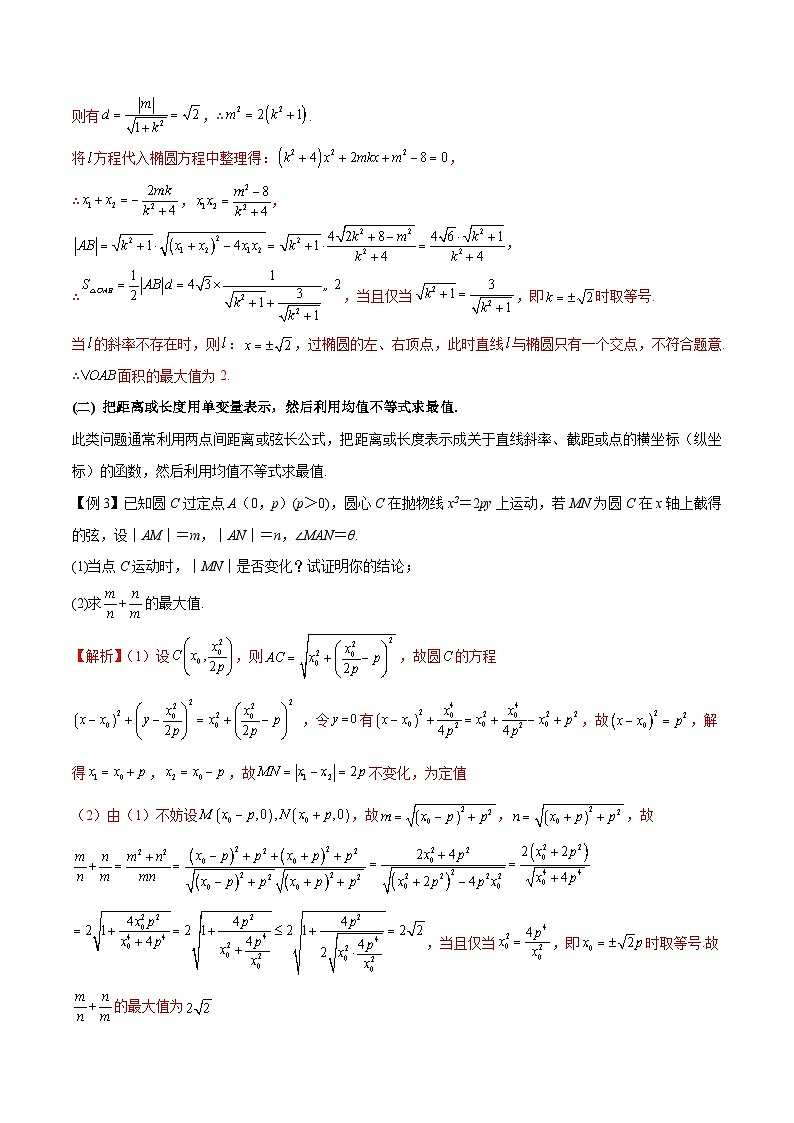 则有 $d=\frac{|m|}{\sqrt{1+k^2}}=\sqrt{2}$，∴$m^2=2(k^2+1)$.
将 $l$ 方程代入椭圆方程中整理得：$(k^2+4)x^2+2mkx+m^2-8=0$，
∴$x_1+x_2=-\frac{2mk}{k^2+4}$，$x_1x_2=\frac{m^2-8}{k^2+4}$，
$|AB|=\sqrt{k^2+1}\cdot\sqrt{(x_1+x_2)^2-4x_1x_2}=\sqrt{k^2+1}\cdot\frac{4\sqrt{2k^2+8-m^2}}{k^2+4}=\frac{4\sqrt{6}\cdot\sqrt{k^2+1}}{k^2+4}$，
∴$S_{\triangle OAB}=\frac{1}{2}|AB|d=4\sqrt{3}\times\frac{1}{\sqrt{k^2+1}+\frac{3}{\sqrt{k^2+1}}}$„ 2，当且仅当 $\sqrt{k^2+1}=\frac{3}{\sqrt{k^2+1}}$，即 $k=\pm\sqrt{2}$ 时取等号.
当 $l$ 的斜率不存在时，则 $l$：$x=\pm\sqrt{2}$，过椭圆的左、右顶点，此时直线 $l$ 与椭圆只有一个交点，不符合题意.
∴VOAB 面积的最大值为 2.
(二) 把距离或长度用单变量表示，然后利用均值不等式求最值.
此类问题通常利用两点间距离或弦长公式，把距离或长度表示成关于直线斜率、截距或点的横坐标（纵坐
标）的函数，然后利用均值不等式求最值.
【例 3】已知圆 C 过定点 A（0，p）(p＞0)，圆心 C 在抛物线 x²＝2py 上运动，若 MN 为圆 C 在 x 轴上截得
的弦，设｜AM｜＝m，｜AN｜＝n，∠MAN＝θ.
(1)当点 C 运动时，｜MN｜是否变化？试证明你的结论；
(2)求 $\frac{m}{n}+\frac{n}{m}$ 的最大值.
【解析】（1）设 $C\left(x_0,\frac{x_0^2}{2p}\right)$，则 $AC=\sqrt{x_0^2+\left(\frac{x_0^2}{2p}-p\right)^2}$，故圆 $C$ 的方程
$(x-x_0)^2+\left(y-\frac{x_0^2}{2p}\right)^2=x_0^2+\left(\frac{x_0^2}{2p}-p\right)^2$，令 $y=0$ 有 $(x-x_0)^2+\frac{x_0^4}{4p^2}=x_0^2+\frac{x_0^4}{4p^2}-x_0^2+p^2$，故 $(x-x_0)^2=p^2$，解
得 $x_1=x_0+p$，$x_2=x_0-p$，故 $MN=|x_1-x_2|=2p$ 不变化，为定值
（2）由（1）不妨设 $M(x_0-p,0),N(x_0+p,0)$，故 $m=\sqrt{(x_0-p)^2+p^2}$，$n=\sqrt{(x_0+p)^2+p^2}$，故
$\frac{m}{n}+\frac{n}{m}=\frac{m^2+n^2}{mn}=\frac{(x_0-p)^2+p^2+(x_0+p)^2+p^2}{\sqrt{(x_0-p)^2+p^2}\sqrt{(x_0+p)^2+p^2}}=\frac{2x_0^2+4p^2}{\sqrt{(x_0^2+2p^2)^2-4p^2x_0^2}}=\frac{2(x_0^2+2p^2)}{\sqrt{x_0^4+4p^4}}$
$=2\sqrt{1+\frac{4x_0^2p^2}{x_0^4+4p^4}}=2\sqrt{1+\frac{4p^2}{x_0^2+\frac{4p^4}{x_0^2}}}\le 2\sqrt{1+\frac{4p^2}{2\sqrt{x_0^2\cdot\frac{4p^4}{x_0^2}}}}=2\sqrt{2}$，当且仅当 $x_0^2=\frac{4p^4}{x_0^2}$，即 $x_0=\pm\sqrt{2}p$ 时取等号.故
$\frac{m}{n}+\frac{n}{m}$ 的最大值为 $2\sqrt{2}$